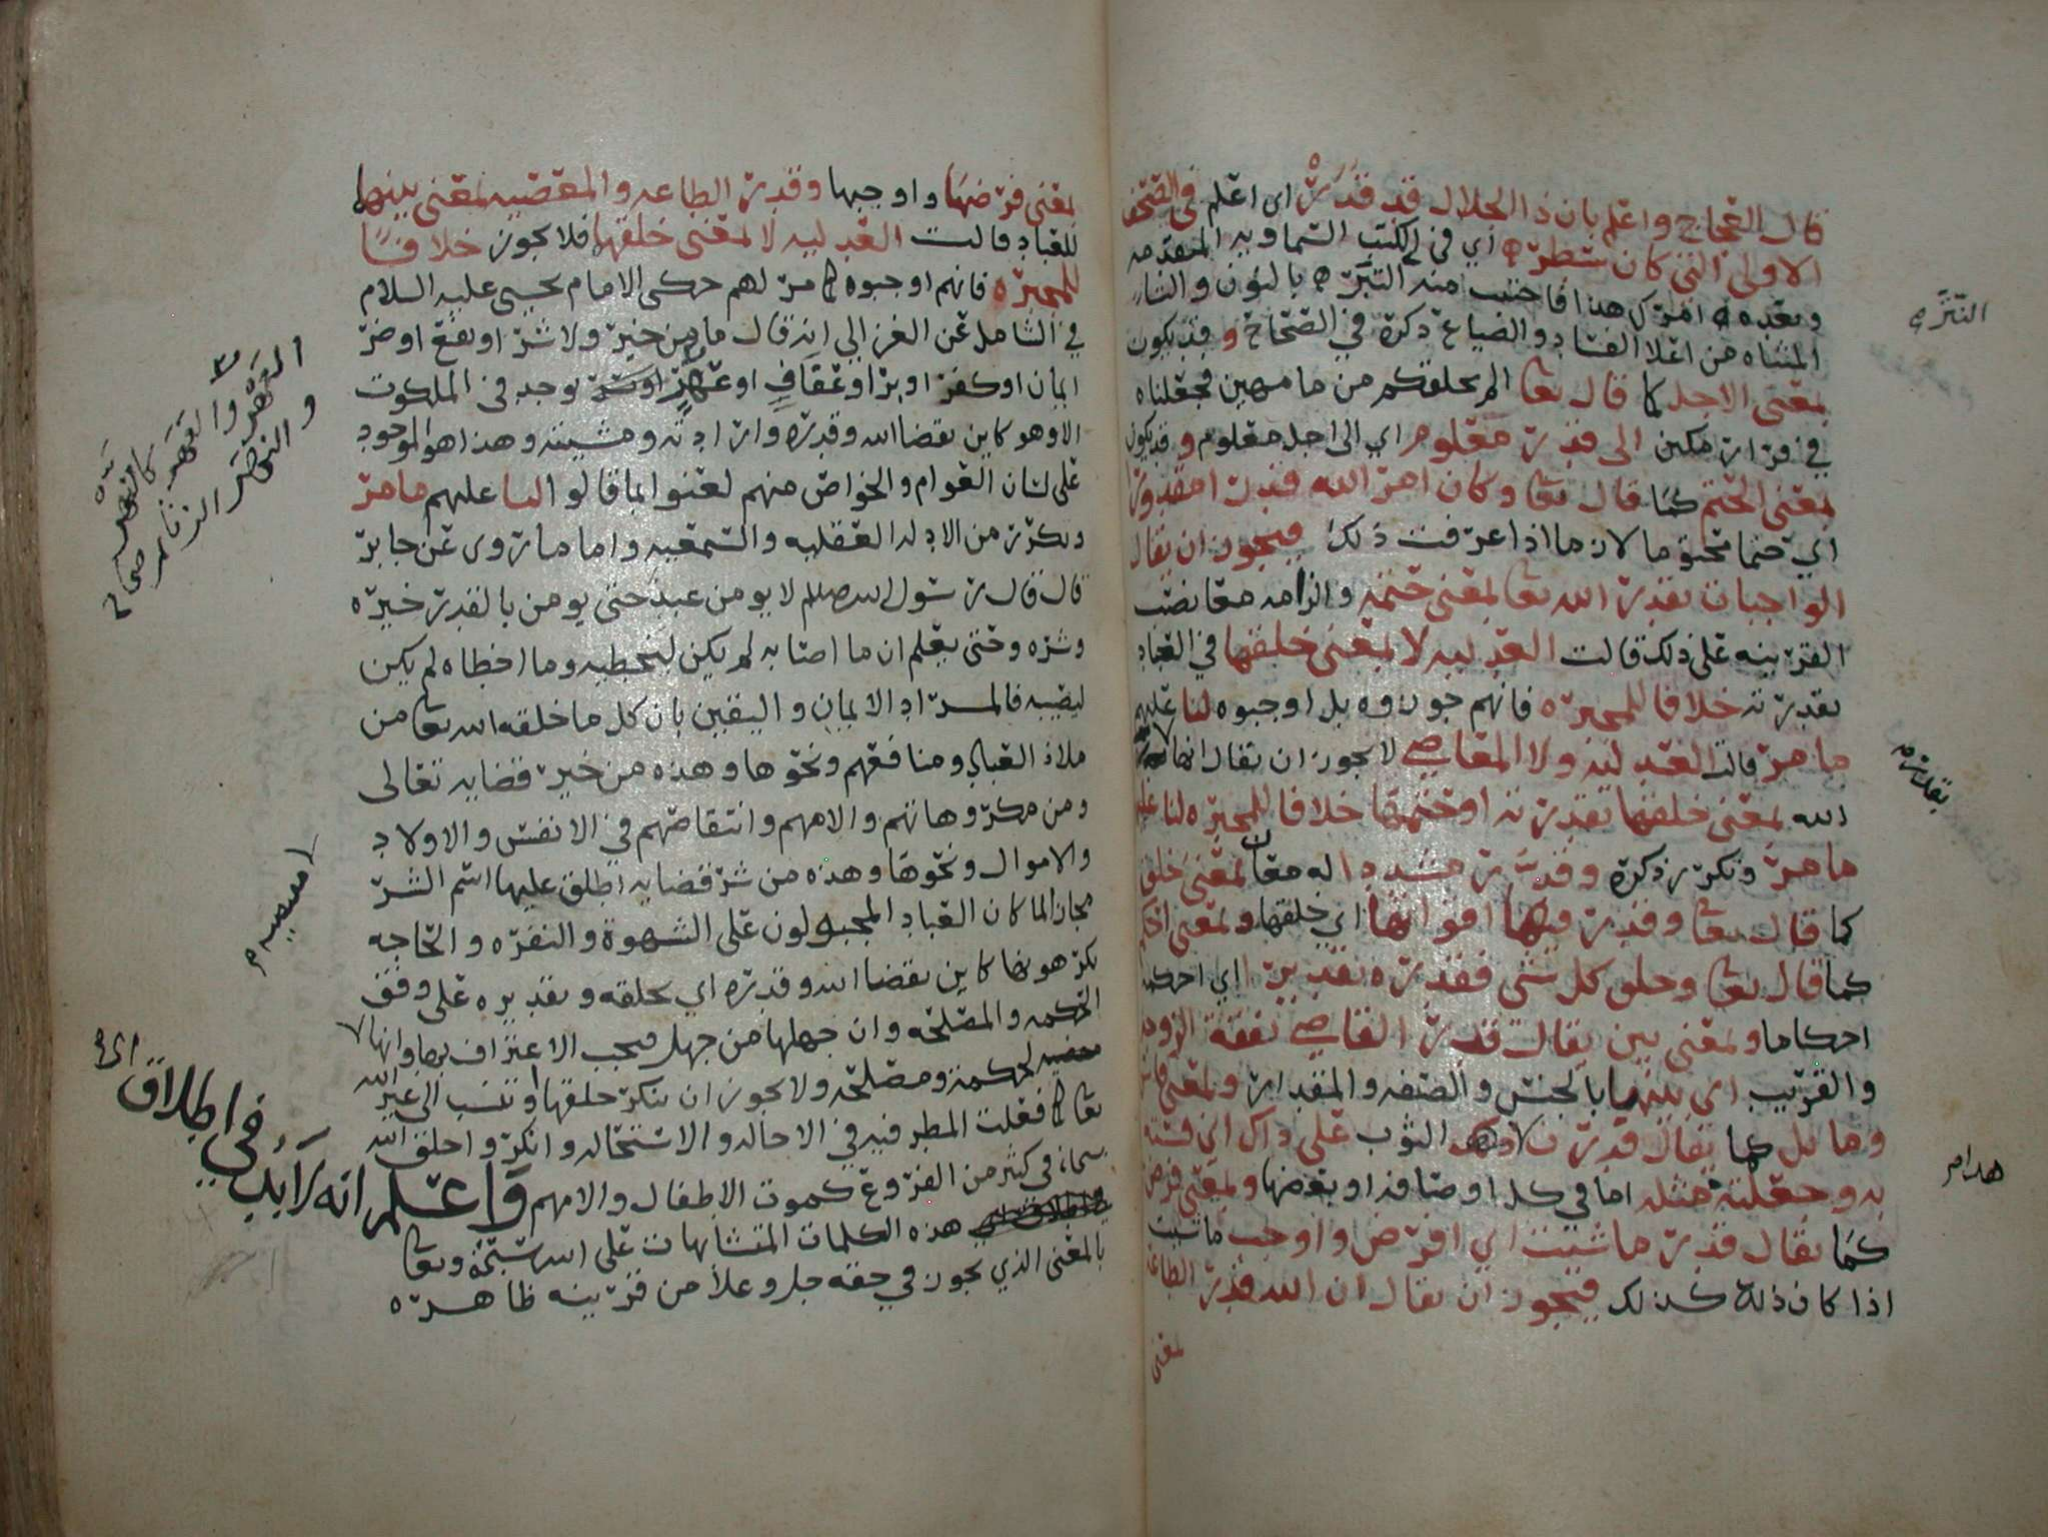 قال العجاج واعلم بان ذا الجلال قد قدره اي اعلم في الصحف
الاولى التي كان سطره اي في الكتب السماويه المتقدمه
وبعده امرك هذا فاجتنب منه التبره بالنون والتا
المثناه من اعلا الفساد والضياع ذكره في الصحاح وقد يكون
بمعنى الاجل كما قال تعا الم نخلقكم من ما مهين فجعلناه
في قرار مكين الى قدر معلوم اي الى اجل معلوم وقد يكون
بمعنى الحتم كما قال تعا وكان امر الله قدرا مقدورا
اي حتما محتوما لازما اذا عرفت ذلك فيجوز ان يقال
الواجبات بقدر الله تعا بمعنى حتمه والزامه مع نصب
القرينه على ذلك قالت العدليه لا بمعنى خلقها في العباد
بقدرته خلافا للمجبره فانهم جوزوه بل اوجبوه لنا عليهم
ما مر قالت العدليه ولا المعاصي لا يجوز ان يقال انها
الله بمعنى خلقها بقدرته او حتمها خلافا للمجبره لنا عليهم
ما مر وتكرر ذكره وقدر مشددا له معان بمعنى خلق
كما قال تعا وقدر فيها اقواتها اي خلقها وبمعنى احكم
كما قال تعا وخلق كل شي فقدره تقديرا اي احكمه
احكاما وبمعنى بين يقال قدر القاضي نفقة الزوجه
والقريب اي بينها بالجنس والصفه والمقدار وبمعنى قاس
وماثل كما يقال قدرت هذا الثوب على ذاك اي قسته
به وجعلته مثله اما في كل اوصافه او بعضها وبمعنى فرض
كما يقال قدر ما شيت اي افرض واوجب ما شيت
اذا كان ذلك كذلك فيجوز ان يقال ان الله قدر الطاعه
بمعنى
النتره
بقدره
هدامر
بمعنى فرضها واوجبها وقدر الطاعه والمعصيه بمعنى بينها
للعباد قالت العدليه لا بمعنى خلقها فلا يجوز خلافا
للمجبره فانهم اوجبوه كما مر لهم حكى الامام يحيى عليه السلام
في الشامل عن الغزالي انه قال ما من خير ولا شر او نفع او ضر
ايمان او كفر او بر او عفاف او عهر يوجد في الملكوت
الا وهو كاين بقضا الله وقدره وارادته ومشيته وهذا هو الموجود
على لسان العوام والخواص منهم لعنوا بما قالوا لنا عليهم ما مر
وتكرر من الادله العقليه والسمعيه واما ما روى عن جابر
قال قال رسول الله صلعم لا يومن عبد حتى يومن بالقدر خيره
وشره وحتى يعلم ان ما اصابه لم يكن ليخطيه وما اخطاه لم يكن
ليصيبه فالمراد الايمان واليقين بان كل ما خلقه الله تعا من
ملاذ العباد ومنافعهم ونحوها وهذه من خير قضايه تعالى
ومن مكروهاتهم والامهم وانتقاصهم في الانفس والاولاد
والاموال ونحوها وهذه من شر قضايه اطلق عليها اسم الشر
مجازا لما كان العباد المجبولون على الشهوة والنفره والحاجه
تكرهونها كاين بقضا الله وقدره اي بخلقه وتقديره على وفق
الحكمه والمصلحه وان جهلها من جهل فيجب الاعتراف بها وانها
لحكمة ومصلحه ولا يجوز ان ننكر خلقها او تنسب الى غير الله
تعا كما فعلت المطرفيه في الاحاله والاستحاله وانكروا خلق الله
في كثير من الفروع كموت الاطفال والامهم واعلم انه لا بد في اطلاق
هذه الكلمات المتشابهات على الله سبحنه وتعا
بالمعنى الذي يجوز في حقه جل وعلا من قرينه ظاهره
العهر والعهر